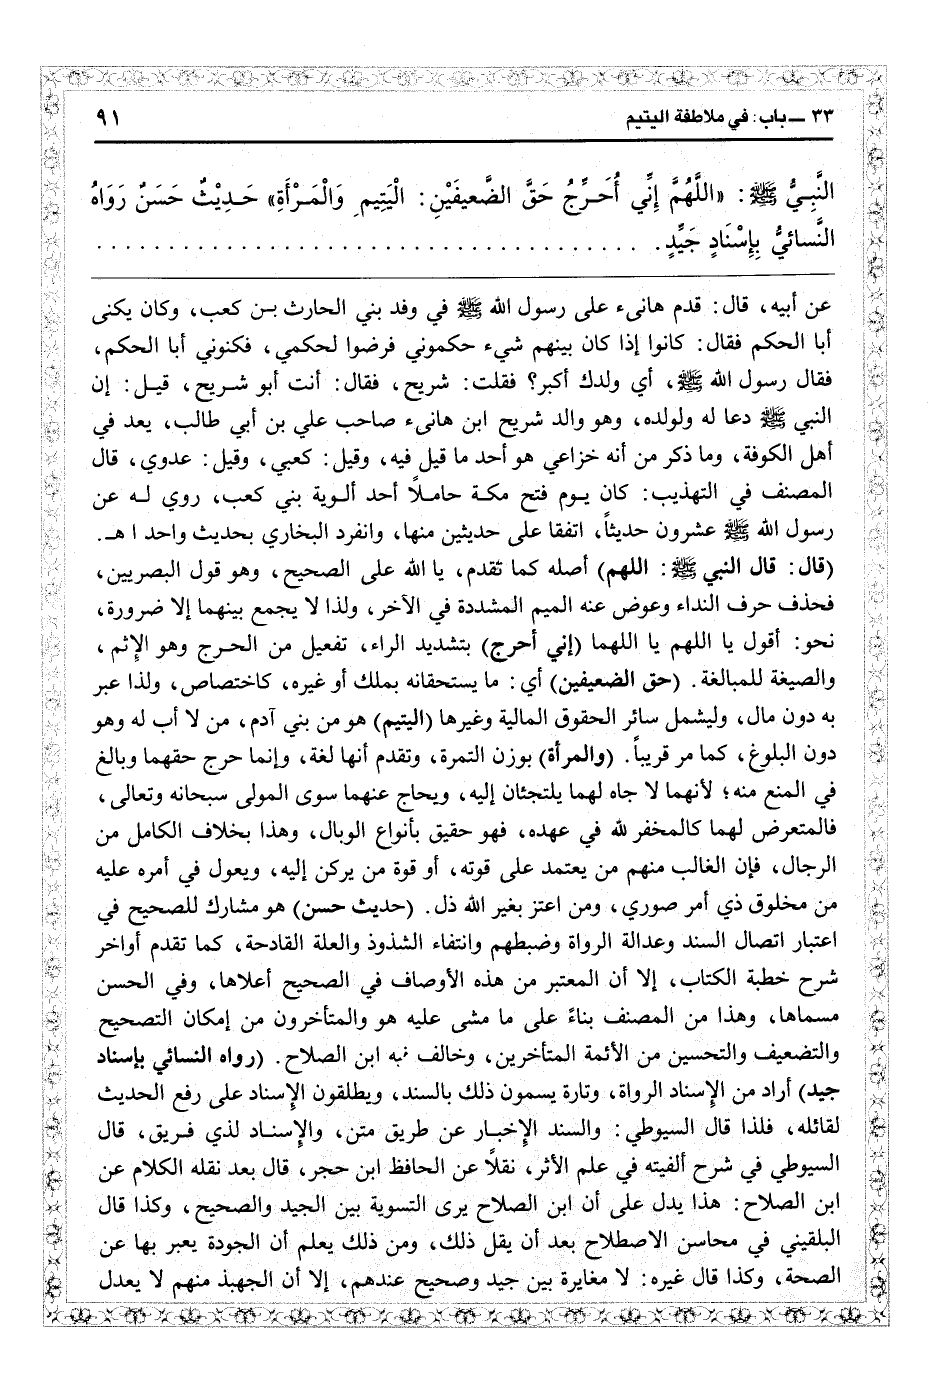 ٣٣ ــ باب: في ملاطفة اليتيم ٩١
النَّبِيُّ ﷺ: «اللَّهُمَّ إِنِّي أُحَرِّجُ حَقَّ الضَّعيفَيْنِ: الْيَتِيمِ وَالْمَرْأَةِ» حَدِيْثٌ حَسَنٌ رَوَاهُ
النَّسائيُّ بِإِسْنَادٍ جَيِّدٍ. . . . . . . . . . . . . . . . . . . . . . . . . . . . . . . . . . . . . . .
عن أبيه، قال: قدم هانىء على رسول الله ﷺ في وفد بني الحارث بـن كعب، وكان يكنى
أبا الحكم فقال: كانوا إذا كان بينهم شيء حكموني فرضوا لحكمي، فكنوني أبا الحكم،
فقال رسول الله ﷺ، أي ولدك أكبر؟ فقلت: شريح، فقال: أنت أبو شـريح، قيـل: إن
النبي ﷺ دعا له ولولده، وهو والد شريح ابن هانىء صاحب علي بن أبي طالب، يعد في
أهل الكوفة، وما ذكر من أنه خزاعي هو أحد ما قيل فيه، وقيل: كعبي، وقيل: عدوي، قال
المصنف في التهذيب: كان يـوم فتح مكـة حامـلاً أحد ألـوية بني كعب، روي لـه عن
رسول الله ﷺ عشرون حديثاً، اتفقا على حديثين منها، وانفرد البخاري بحديث واحد ا هـ.
(قال: قال النبي ﷺ: اللهم) أصله كما تقدم، يا الله على الصحيح، وهو قول البصريين،
فحذف حرف النداء وعوض عنه الميم المشددة في الآخر، ولذا لا يجمع بينهما إلا ضرورة،
نحو: أقول يا اللهم يا اللهما (إني أحرج) بتشديد الراء، تفعيل من الحـرج وهو الإِثم،
والصيغة للمبالغة. (حق الضعيفين) أي: ما يستحقانه بملك أو غيره، كاختصاص، ولذا عبر
به دون مال، وليشمل سائر الحقوق المالية وغيرها (اليتيم) هو من بني آدم، من لا أب له وهو
دون البلوغ، كما مر قريباً. (والمرأة) بوزن التمرة، وتقدم أنها لغة، وإنما حرج حقهما وبالغ
في المنع منه؛ لأنهما لا جاه لهما يلتجئان إليه، ويحاج عنهما سوى المولى سبحانه وتعالى،
فالمتعرض لهما كالمخفر لله في عهده، فهو حقيق بأنواع الوبال، وهذا بخلاف الكامل من
الرجال، فإن الغالب منهم من يعتمد على قوته، أو قوة من يركن إليه، ويعول في أمره عليه
من مخلوق ذي أمر صوري، ومن اعتز بغير الله ذل. (حديث حسن) هو مشارك للصحيح في
اعتبار اتصال السند وعدالة الرواة وضبطهم وانتفاء الشذوذ والعلة القادحة، كما تقدم أواخر
شرح خطبة الكتاب، إلا أن المعتبر من هذه الأوصاف في الصحيح أعلاها، وفي الحسن
مسماها، وهذا من المصنف بناءً على ما مشى عليه هو والمتأخرون من إمكان التصحيح
والتضعيف والتحسين من الأئمة المتأخرين، وخالف فيه ابن الصلاح. (رواه النسائي بإسناد
جيد) أراد من الإِسناد الرواة، وتارة يسمون ذلك بالسند، ويطلقون الإِسناد على رفع الحديث
لقائله، فلذا قال السيوطي: والسند الإِخبـار عن طريق متن، والإِسنـاد لذي فـريق، قال
السيوطي في شرح ألفيته في علم الأثر، نقلاً عن الحافظ ابن حجر، قال بعد نقله الكلام عن
ابن الصلاح: هذا يدل على أن ابن الصلاح يرى التسوية بين الجيد والصحيح، وكذا قال
البلقيني في محاسن الاصطلاح بعد أن يقل ذلك، ومن ذلك يعلم أن الجودة يعبر بها عن
الصحة، وكذا قال غيره: لا مغايرة بين جيد وصحيح عندهم، إلا أن الجهبذ منهم لا يعدل